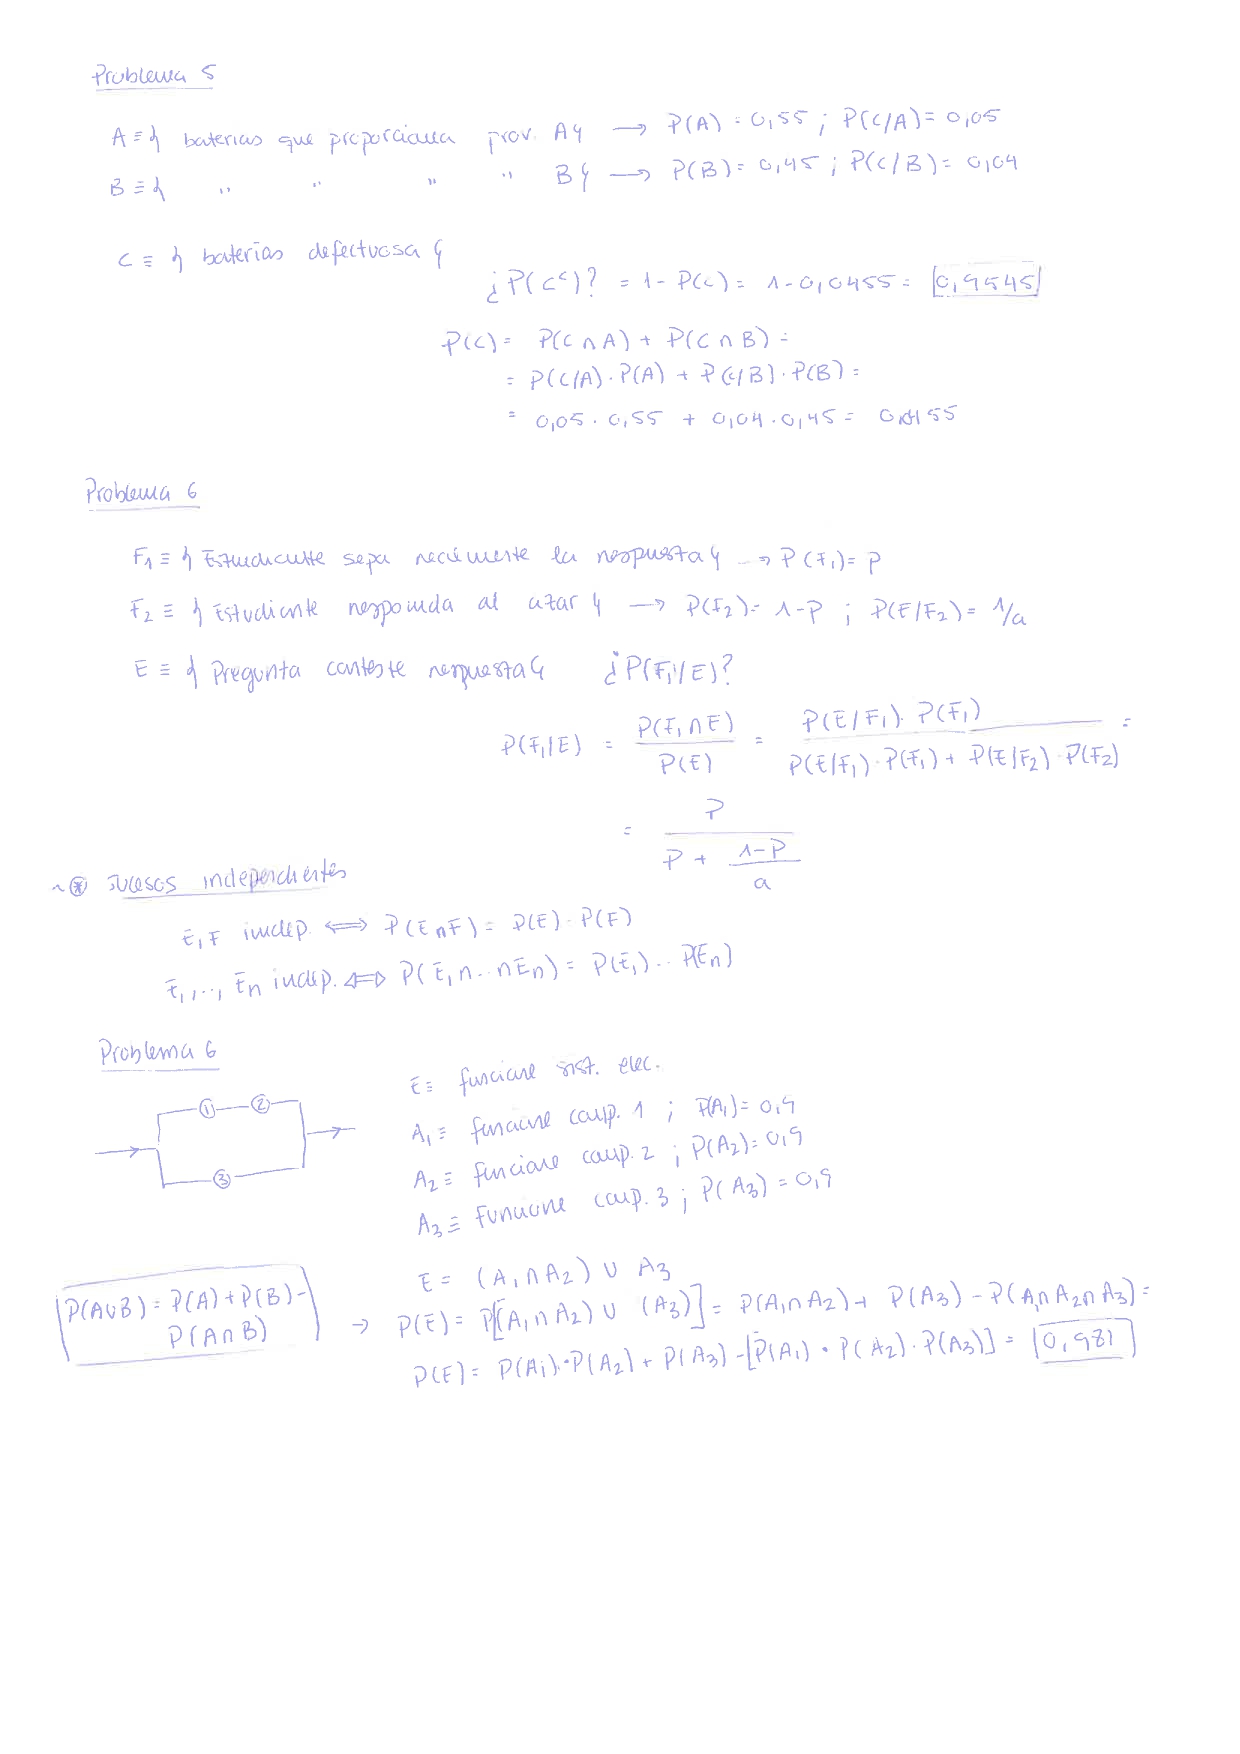 Problema 5
A ≡ { baterías que proporciona prov. A } → P(A) = 0,55 ; P(C/A) = 0,05
B ≡ { " " " " B } → P(B) = 0,45 ; P(C/B) = 0,04
C ≡ { baterías defectuosa }
¿P(Cᶜ)? = 1 - P(C) = 1 - 0,0455 = 0,9545
P(C) = P(C ∩ A) + P(C ∩ B) =
= P(C/A) · P(A) + P(C/B) · P(B) =
= 0,05 · 0,55 + 0,04 · 0,45 = 0,0455
Problema 6
F₁ ≡ { Estudiante sepa realmente la respuesta } → P(F₁) = P
F₂ ≡ { Estudiante responda al azar } → P(F₂) = 1-P ; P(E/F₂) = 1/a
E ≡ { Pregunta conteste respuesta } ¿P(F₁/E)?
P(F₁/E) = P(F₁ ∩ E) / P(E) = P(E/F₁) · P(F₁) / P(E/F₁) · P(F₁) + P(E/F₂) · P(F₂) =
= P / P + (1-P)/a
⊛ Sucesos independientes
E, F indep. ⟺ P(E ∩ F) = P(E) · P(F)
E₁, ..., Eₙ indep. ⟺ P(E₁ ∩ .. ∩ Eₙ) = P(E₁) .. P(Eₙ)
Problema 6
1 2
3
E ≡ funcione sist. elec.
A₁ ≡ funcione comp. 1 ; P(A₁) = 0,9
A₂ ≡ funcione comp. 2 ; P(A₂) = 0,9
A₃ ≡ Funcione comp. 3 ; P(A₃) = 0,9
E = (A₁ ∩ A₂) ∪ A₃
P(A∪B) = P(A) + P(B) -
P(A∩B)
→ P(E) = P[(A₁ ∩ A₂) ∪ (A₃)] = P(A₁ ∩ A₂) + P(A₃) - P(A₁ ∩ A₂ ∩ A₃) =
P(E) = P(A₁) · P(A₂) + P(A₃) - [P(A₁) · P(A₂) · P(A₃)] = 0,981